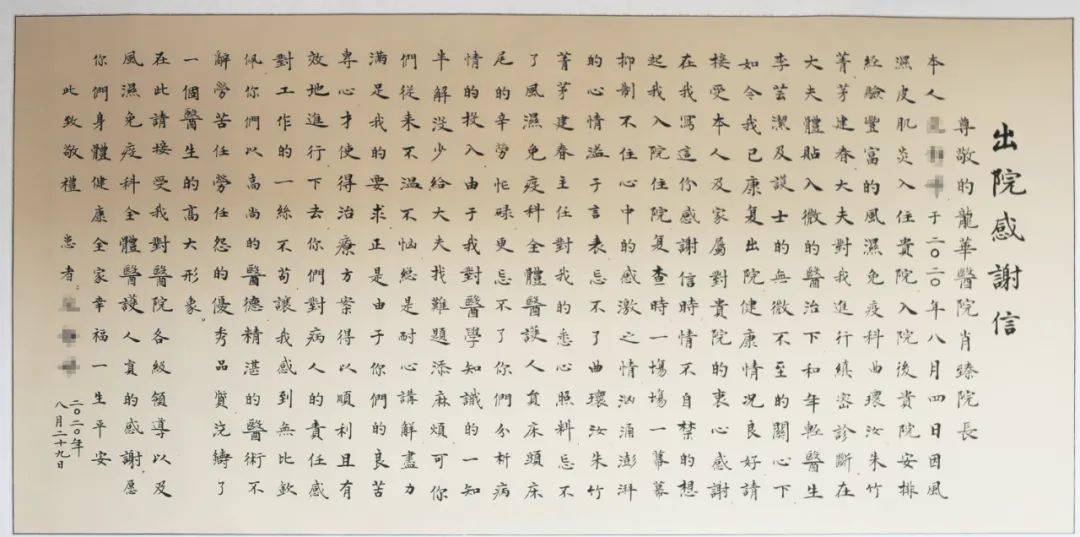 出院感謝信
尊敬的龍華醫院肖臻院長
本人于二〇二〇年八月四日因風
濕皮肌炎入住貴院入院後貴院安排
經驗豐富的風濕免疫科曲環汝朱竹
菁茅建春大夫對我進行縝密診斷在
大夫體貼入微的醫治下和年輕醫生
李芸潔及護士的無微不至的關心下
如今我已康复出院健康情况良好請
接受本人及家屬對貴院的衷心感謝
在我寫這份感謝信時情不自禁的想
起我入院住院复查時一場場一幕幕
抑制不住心中的感激之情汹涌澎湃
的心情溢于言表忘不了曲環汝朱竹
菁茅建春主任對我的悉心照料忘不
了風濕免疫科全體醫護人員床頭床
尾的辛勞忙碌更忘不了你們分析病
情的投入由于我對醫學知識的一知
半解没少給大夫找難題添麻煩可你
們從来不温不恼總是耐心講解盡力
滿足我的要求正是由于你們的良苦
專心才使得治療方案得以順利且有
效地進行下去你們對病人的責任感
對工作的一絲不苟讓我感到無比欽
佩你們以高尚的醫德精湛的醫術不
辭勞苦任勞任怨的優秀品質鑄了
一個醫生的高大形象。
在此請接受我對醫院各級領導以及
風濕免疫科全體醫護人員的感謝愿
你們身體健康全家幸福一生平安
此致敬禮 患者
二〇二〇年
八月二十九日